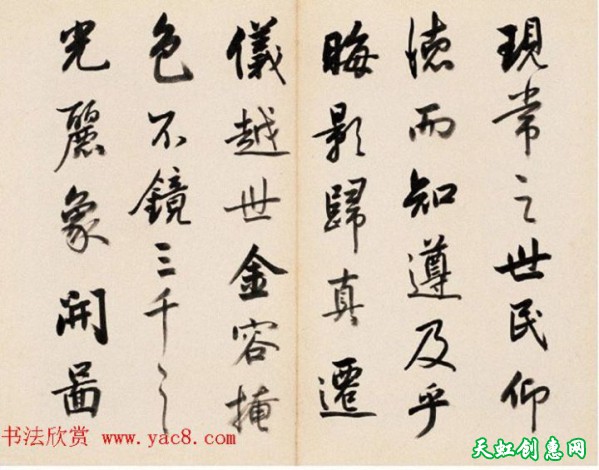 現常之世民仰
徳而知遵及乎
晦影歸真遷
儀越世金容掩
色不鏡三千之
光麗象開啚
书法欣赏 www.yac8.com
天虹创惠网